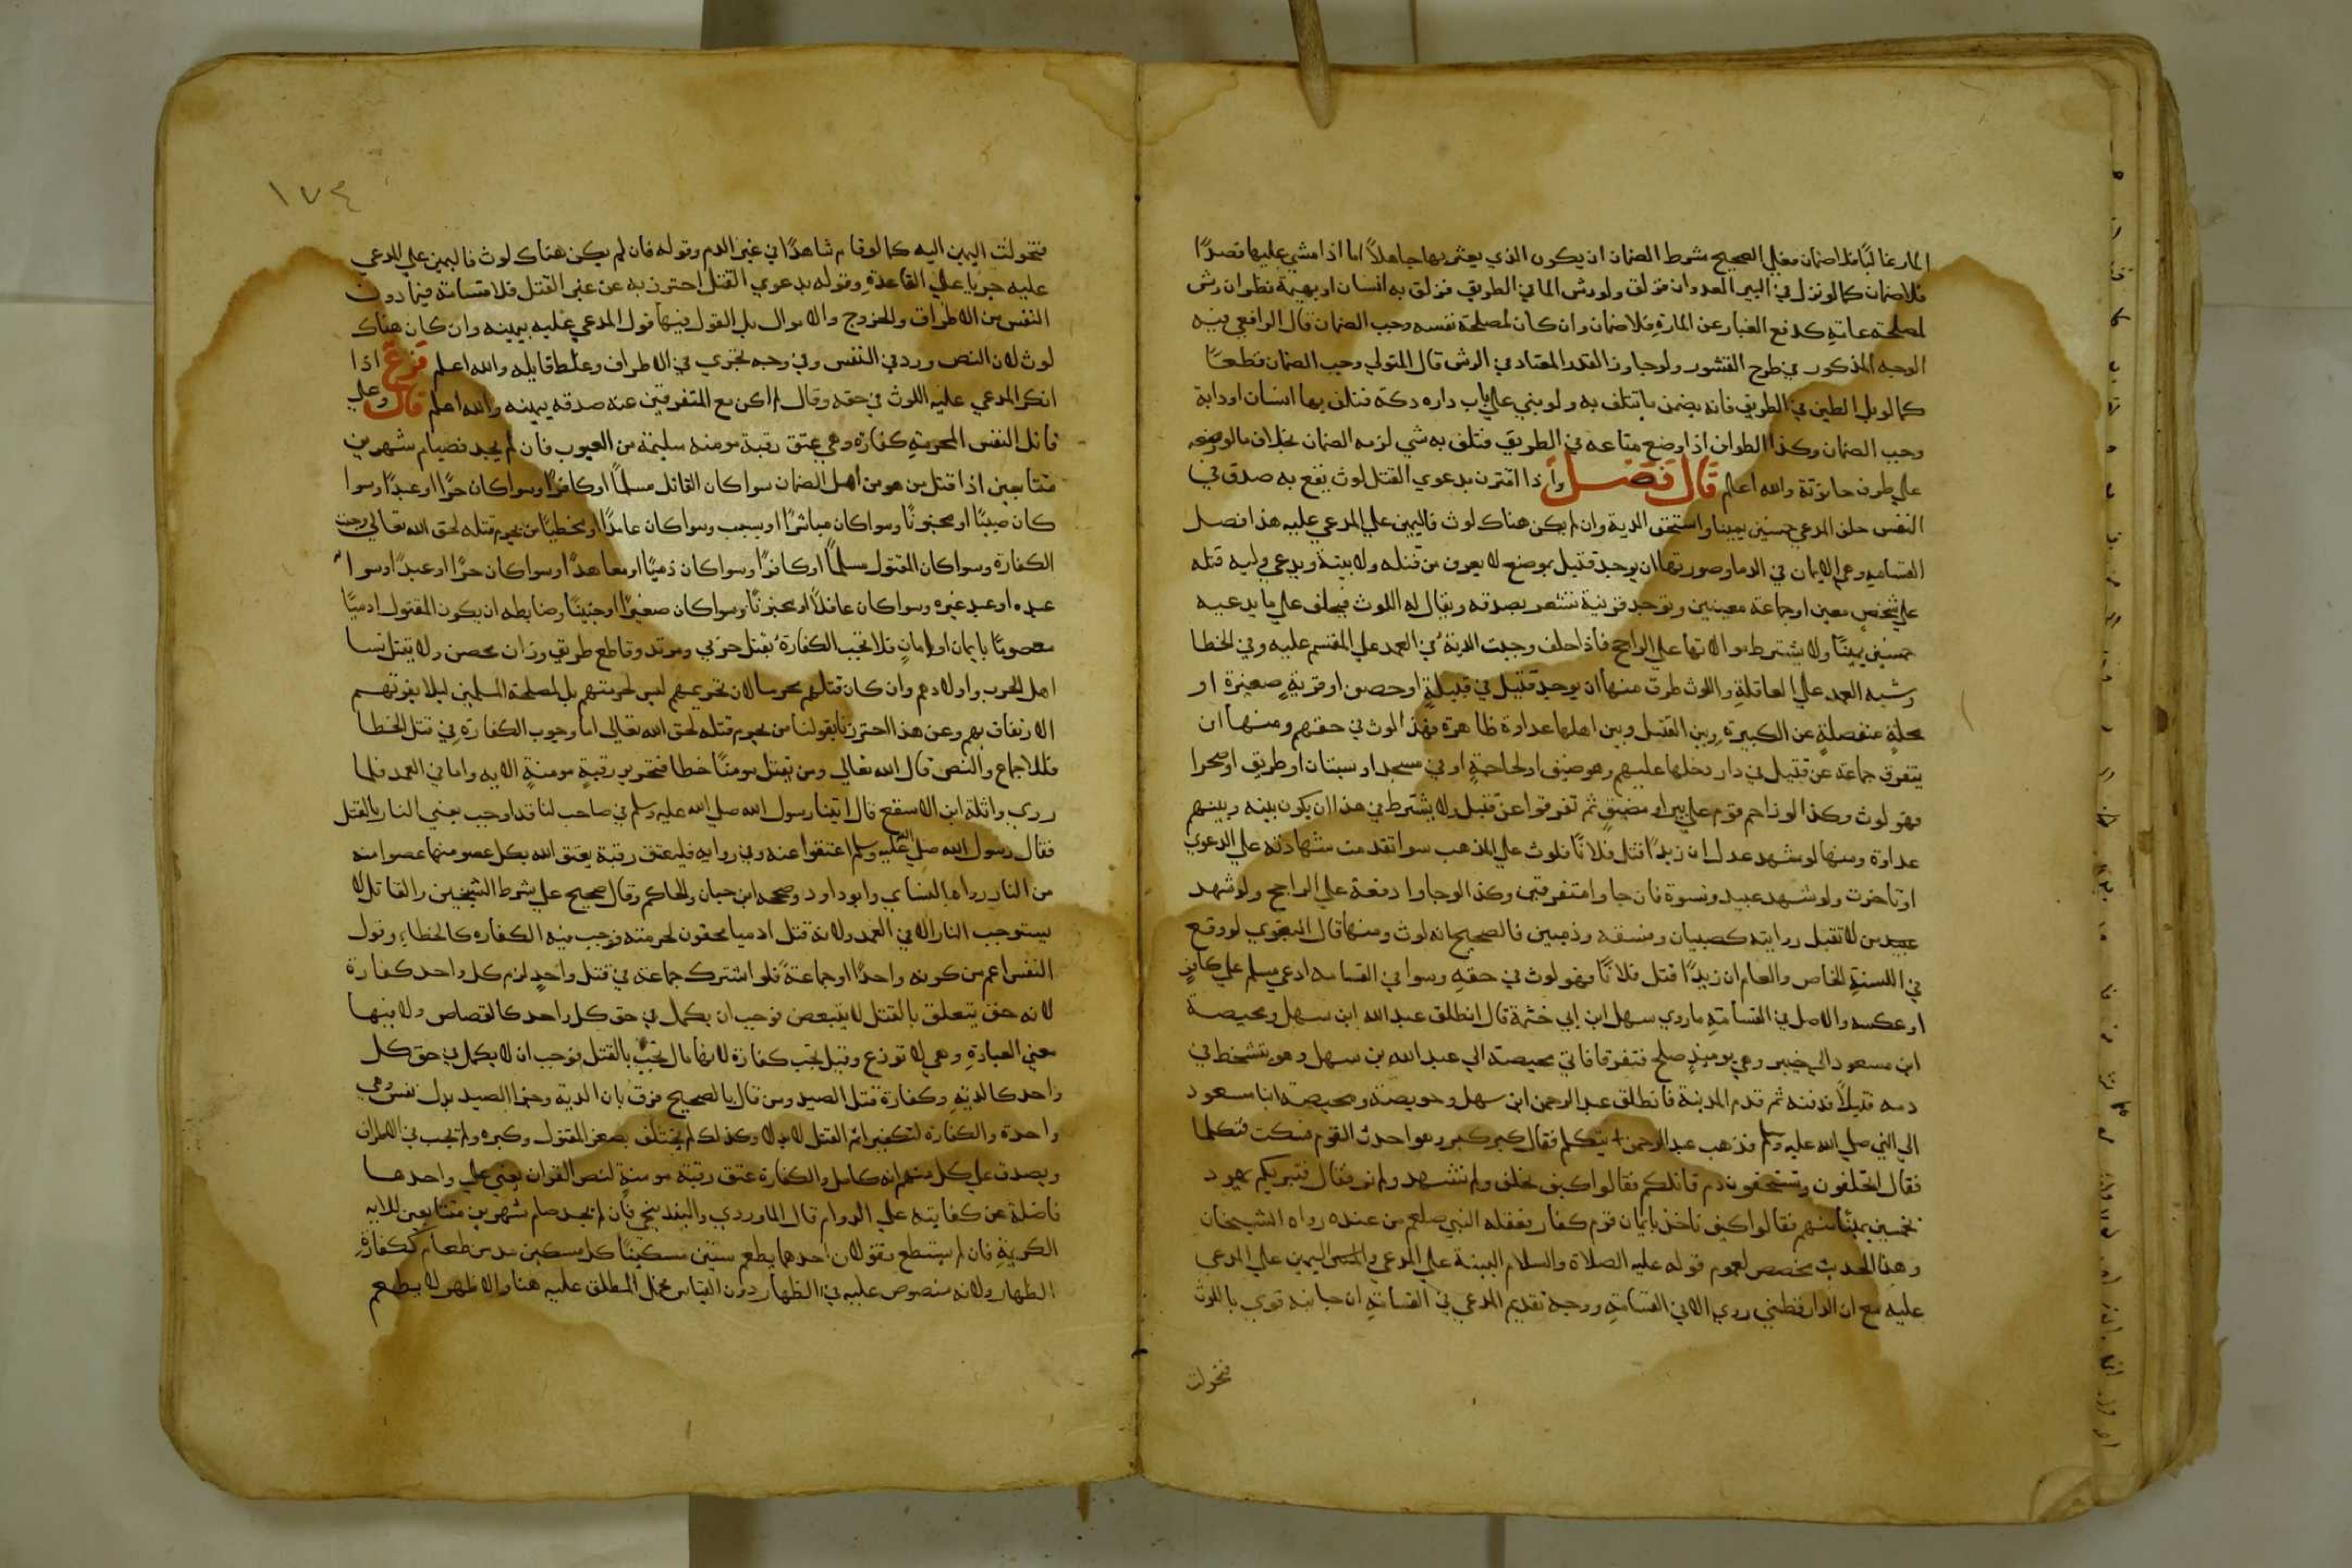 المار غالبًا فلا ضمان فعلي الصحيح شرط الضمان ان يكون الذي يعثر بها جاهلاً اما اذا مشي عليها قصدًا
فلا ضمان كما لو نزل في البير العدوان فزلق ولو رش الما في الطريق فزلق به انسان او بهيمة نظر ان رش
لمصلحة عامة كدفع الغبار عن المارة فلا ضمان وان كان لمصلحة نفسه وجب الضمان قال الرافعي فيه
الوجه المذكور في طرح القشور ولو جاوز القدر المعتاد في الرش قال المتولي وجب الضمان قطعًا
كما لو بل الطين في الطريق فانه يضمن ما يتلف به ولو بني علي باب داره دكة فتلف بها انسان او دابة
وجب الضمان وكذا الطواف اذا وضع متاعه في الطريق فتلف به شي لزمه الضمان بخلاف ما لو وضعه
علي طرف حانوته والله اعلم قال فصل واذا اقترن بدعوي القتل لوث يقع به صدق في
النفس حلف المدعي خمسين يمينا واستحق الدية وان لم يكن هناك لوث فاليمين علي المدعي عليه هذا فصل
القسامة وهي الايمان في الدما وصورتها ان يوجد قتيل بموضع لا يعرف من قتله ولا بينة ويدعي وليه قتله
علي شخص معين او جماعة معينين وتوجد قرينة تشعر بصدقه ويقال له اللوث فيحلف علي ما يدعيه
خمسين يمينًا ولا يشترط موالاتها علي الراجح فاذا حلف وجبت الدية في العمد علي المقسم عليه وفي الخطا
وشبه العمد علي العاقلة واللوث طرق منها ان يوجد قتيل في قبيلة او حصن او قرية صغيرة او
محلة منفصلة عن الكبيرة وبين القتيل وبين اهلها عداوة ظاهرة فهذا لوث في حقهم ومنها ان
يتفرق جماعة عن قتيل في دار دخلها عليهم وهو ضيف او لحاجة او في مسجد او بستان او طريق او صحرا
فهو لوث وكذا لو ازدحم قوم علي بير او مضيق ثم تفرقوا عن قتيل ولا يشترط في هذا ان يكون بينه وبينهم
عداوة ومنها لو شهد عدل ان زيدًا قتل فلانًا فلوث علي المذهب سوا تقدمت شهادته علي الدعوي
او تاخرت ولو شهد عبيد ونسوة فان جاوا متفرقين وكذا لو جاوا دفعة علي الراجح ولو شهد
من لا تقبل روايته كصبيان وفسقة وذميين فالصحيح انه لوث ومنها قال البغوي لو وقع
في السنة الخاص والعام ان زيدًا قتل فلانًا فهو لوث في حقه وسوا في القسامه ادعي مسلم علي كافر
او عكسه والاصل في القسامة ما روي سهل ابن ابي خثمة قال انطلق عبد الله ابن سهل ومحيصة
ابن مسعود الي خيبر وهي يوميذ صلح فتفرقا فاتي محيصة الي عبد الله بن سهل وهو يتشحط في
دمه قتيلاً فدفنه ثم قدم المدينة فانطلق عبد الرحمن ابن سهل وحويصة ومحيصة ابنا مسعود
الي النبي صلي الله عليه وسلم فذهب عبد الرحمن يتكلم فقال كبر كبر وهو احدث القوم فسكت فتكلما
فقال اتحلفون وتستحقون دم قاتلكم فقالوا كيف نحلف ولم نشهد ولم نر فقال فتبريكم يهود
بخمسين يمينًا منهم فقالوا كيف ناخذ بايمان قوم كفار فعقله النبي صلعم من عنده رواه الشيخان
وهذا الحديث مخصص لعموم قوله عليه الصلاة والسلام البينة علي المدعي واليمين علي المدعي
عليه مع ان الدارقطني روي الا في القسامة ووجه تقديم المدعي في القسامة ان جانبه قوي باللوث
فتحولت
١٧٤
فتحولت اليمين اليه كما لو قام شاهدًا في غير الدم وقوله فان لم يكن هناك لوث فاليمين علي المدعي
عليه جريا علي القاعدة وقوله بدعوي القتل احترز به عن غير القتل فلا قسامة فيما دون
النفس من الاطراف والجروح والاموال بل القول فيها قول المدعي عليه بيمينه وان كان هناك
لوث لان النص ورد في النفس وفي وجه تجري في الاطراف وغلط قايله والله اعلم فرع اذا
انكر المدعي عليه اللوث في حقه وقال لم اكن مع المتفرقين عنه صدقه بيمينه والله اعلم قال وعلي
قاتل النفس المحرمة كفارة وهي عتق رقبة مومنة سليمة من العيوب فان لم يجد فصيام شهرين
متتابعين اذا قتل من هو من اهل الضمان سوا كان القاتل مسلمًا او كافرًا وسوا كان حرًا او عبدًا وسوا
كان صبيًا او مجنونًا وسوا كان مباشرًا او بسبب وسوا كان عامدًا او مخطيًا من يحرم قتله لحق الله تعالي وجبت
الكفارة وسوا كان المقتول مسلمًا او كافرًا وسوا كان ذميًا او معاهدًا وسوا كان حرًا او عبدًا وسوا
عبده او عبد غيره وسوا كان عاقلاً او مجنونًا وسوا كان صغيرًا او جنينًا وضابطه ان يكون المقتول ادميًا
معصومًا بايمان او امان فلا تجب الكفارة بقتل حربي ومرتد وقاطع طريق وزان محصن ولا بقتل نسا
اهل الحرب واولادهم وان كان قتلهم محرما لان تحريمهم ليس لحرمتهم بل لمصلحة المسلمين ليلا يفوتهم
الارتفاق بهم وعن هذا احترزنا بقولنا من يحرم قتله لحق الله تعالي اما وجوب الكفارة في قتل الخطا
فللاجماع والنص قال الله تعالي ومن قتل مومنًا خطا فتحرير رقبة مومنة الايه واما في العمد فلما
روي واثلة ابن الاسقع قال اتينا رسول الله صلي الله عليه وسلم في صاحب لنا قد اوجب يعني النار بالقتل
فقال رسول الله صلي الله عليه وسلم اعتقوا عنه وفي روايه فليعتق رقبة يعتق الله بكل عضو منها عضوا منه
من النار رواها النساي وابو داود وصححه ابن حبان والحاكم وقال صحيح علي شرط الشيخين والقاتل لا
يستوجب النار الا في العمد ولانه قتل ادميا محقون لحرمته فوجب فيه الكفاره كالخطاء وقول
النفس اعم من كونه واحدًا او جماعة فلو اشترك جماعة في قتل واحد لزم كل واحد كفارة
لانه حق يتعلق بالقتل لا يتبعض فوجب ان يكمل في حق كل واحد كالقصاص ولا فيها
معني العبادة وهي لا توزع وقيل تجب كفارة لانها مال تجب بالقتل فوجب ان لا يكمل في حق كل
واحد كالدية وكفارة قتل الصيد ومن قال بالصحيح فرق بان الدية وجزا الصيد بدل نفس وهي
واحدة والكفارة لتكفير اثم القتل لا بدلا وكذلك لم يختلف بصغر المقتول وكبره ولم تجب في الاطراف
ويصدق علي كل منهم انه كامل والكفارة عتق رقبة مومنة لنص القران يعني علي واحدها
فاضلة عن كفايته علي الدوام قال الماوردي والبندنيجي فان لم يجد صام شهرين متتابعين للايه
الكريمة فان لم يستطع فقولان احدهما يطعم ستين مسكينًا كل مسكين مد من طعام ككفارة
الظهار ولانه منصوص عليه في الظهار دون القياس فحمل المطلق عليه هنا والاظهر لا يطعم